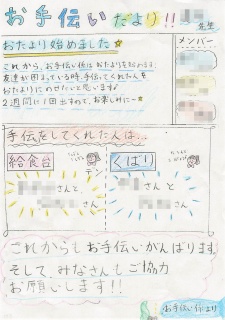 お手伝いだより!!
先生
メンバー
おたより始めました☆
これから、お手伝い係はおたよりを始めます。
友達が困っている時、手伝ってくれた人を
おたよりにのせたいと思います。
2週間に1回出すので、お楽しみに〜☆
手伝をしてくれた人は…
給食台
くばり
さんと
さん
と
さん
これからもお手伝いがんばります
そして、みなさんもご協力
お願いします!!
お手伝い係より